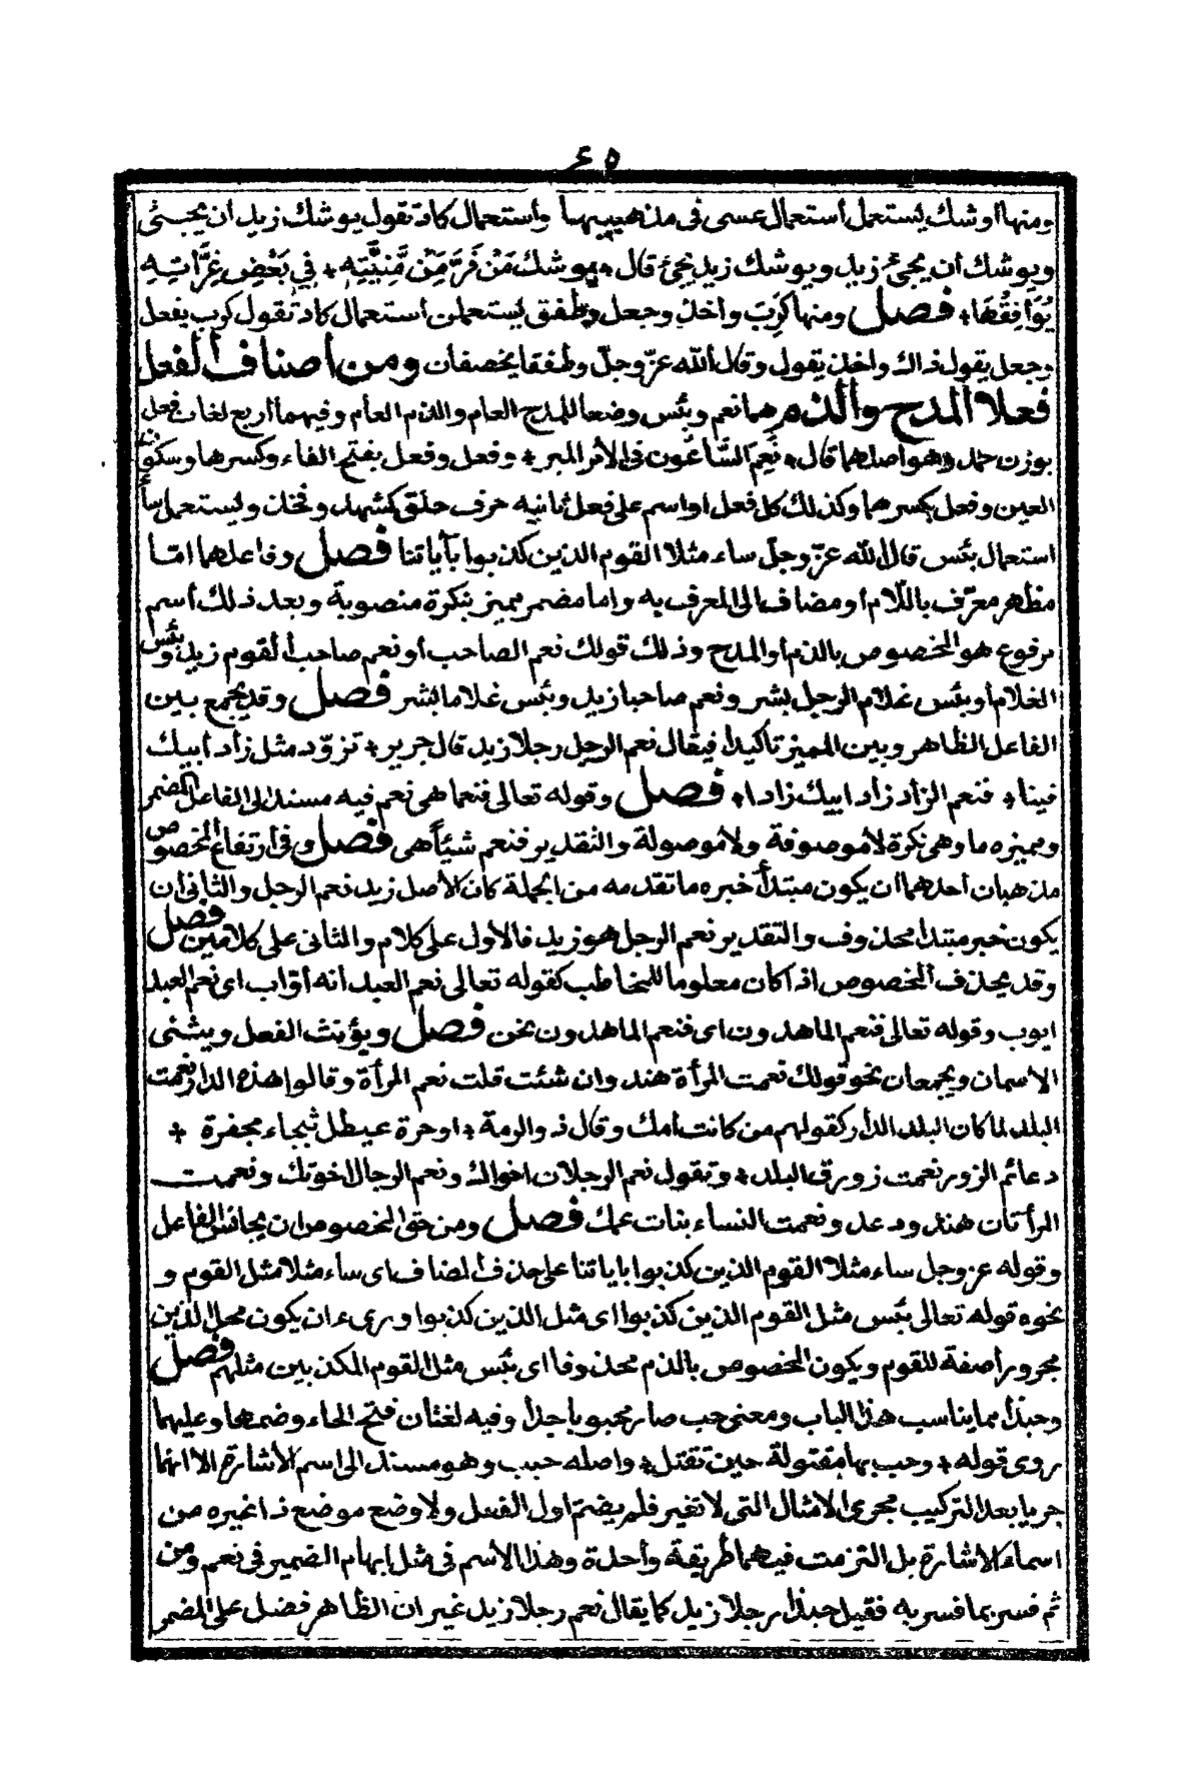 ٤٥
ومنها أوشك يستعمل أستعمال عسى فى مذهبيها وأستعمال كاد تقول يوشك زيد أن يجئ
ويوشك أن يجئ زيد ويوشك زيد يجئ قال * يوشك مَنْ فَرَّ مِنْ مَّنِيَّتِهٖ * فِي بَعْضِ غِرَّاتِهٖ
يُوَافِقُهَا * فصل ومنها كَرِبَ وأخذ وجعل وطفق يستعملن أستعمال كاد تقول كرب يفعل
وجعل يقول ذاك وأخذ يقول وقال ألله عزّ وجلّ وطفقا يخصفان ومن أصناف ألفعل
فعلا المدح وألذم هما نعم وبئس وضعا للمدح العام والذم العام وفيهما أربع لغات فعل
بوزن حمد وهو أصلهما قال * نَعِمَ السَّاعُون فى الأمر المبر * وفعل وفعل بفتح الفاء وكسرها وسكون
العين وفعل بكسرهما وكذلك كل فعل او اسم على فعل ثانيه حرف حلق كشهد وفخذ ويستعمل ساء
استعمال بئس قال الله عزّ وجلّ ساء مثلا القوم الذين كذبوا بآياتنا فصل وفاعلهما امّا
مظهر معرّف باللّام أو مضاف الى المعرف به واما مضمر مميز بنكرة منصوبة وبعد ذلك أسم
مرفوع هو المخصوص بالذم أو المدح وذلك قولك نعم الصاحب أو نعم صاحب ألقوم زيد وبئس
الغلام أو بئس غلام الرجل بشر ونعم صاحبا زيد وبئس غلاما بشر فصل وقد يجمع بين
الفاعل الظاهر وبين المميز تاكيدا فيقال نعم الرجل رجلا زيد قال جرير * تزوّد مثل زاد ابيك
فينا * فنعم الزاد زاد ابيك زادا * فصل وقوله تعالى فنعما هى نعم فيه مسند الى الفاعل المضمر
ومميزه ما وهى نكرة لا موصوفة ولا موصولة والتقدير فنعم شيئاً هى فصل وفى أرتفاع المخصوص
مذهبان أحدهما أن يكون مبتدأ خبره ما تقدمه من الجملة كان الأصل زيد نعم الرجل والثانى أن
يكون خبر مبتدا محذوف والتقدير نعم الرجل هو زيد فالأول على كلام والثانى على كلامين فصل
وقد يحذف المخصوص اذا كان معلوما للمخاطب كقوله تعالى نعم العبد انه أوّاب اى نعم العبد
ايوب وقوله تعالى فنعم الماهدون اى فنعم الماهدون نحن فصل ويؤنث الفعل ويثنى
الاسمان ويجمعان نحو قولك نعمت المرأة هند وان شئت قلت نعم المرأة وقالوا هذه الدار نعمت
البلد لما كان البلد الدار كقولهم من كانت أمك وقال ذو الرمة * او حرة عيطل ثبجاء مجفرة *
دعائم الزور نعمت زورق البلد * وتقول نعم الرجلان اخواك ونعم الرجال اخوتك ونعمت
المرأتان هند ودعد ونعمت النساء بنات عمك فصل ومن حق المخصوص ان يجانس الفاعل
وقوله عز وجل ساء مثلا القوم الذين كذبوا باياتنا على حذف المضاف اى ساء مثلا مثل القوم و
نحوه قوله تعالى بئس مثل القوم الذين كذبوا اى مثل الذين كذبوا ورىء ان يكون محل الذين
مجرورا صفة للقوم ويكون المخصوص بالذم محذوفا اى بئس مثل القوم المكذبين مثلهم فصل
وحبذا مما يناسب هذا الباب ومعنى حب صار محبوبا جدا وفيه لغتان فتح الحاء وضمها وعليهما
روى قوله * وحب بها مقتولة حين تقتل * واصله حبب وهو مسند الى اسم الأشارة الا انهما
جريا بعد التركيب مجرى الامثال التى لا تغير فلم يضم اول الفعل ولا وضع موضع ذا غيره من
اسماء الاشارة بل التزمت فيهما طريقة وأحدة وهذا الأسم فى مثل إبهام الضمير فى نعم ومن
ثم فسر بما فسر به فقيل حبذا رجلا زيد كما يقال نعم رجلا زيد غير ان الظاهر فضل على المضمر